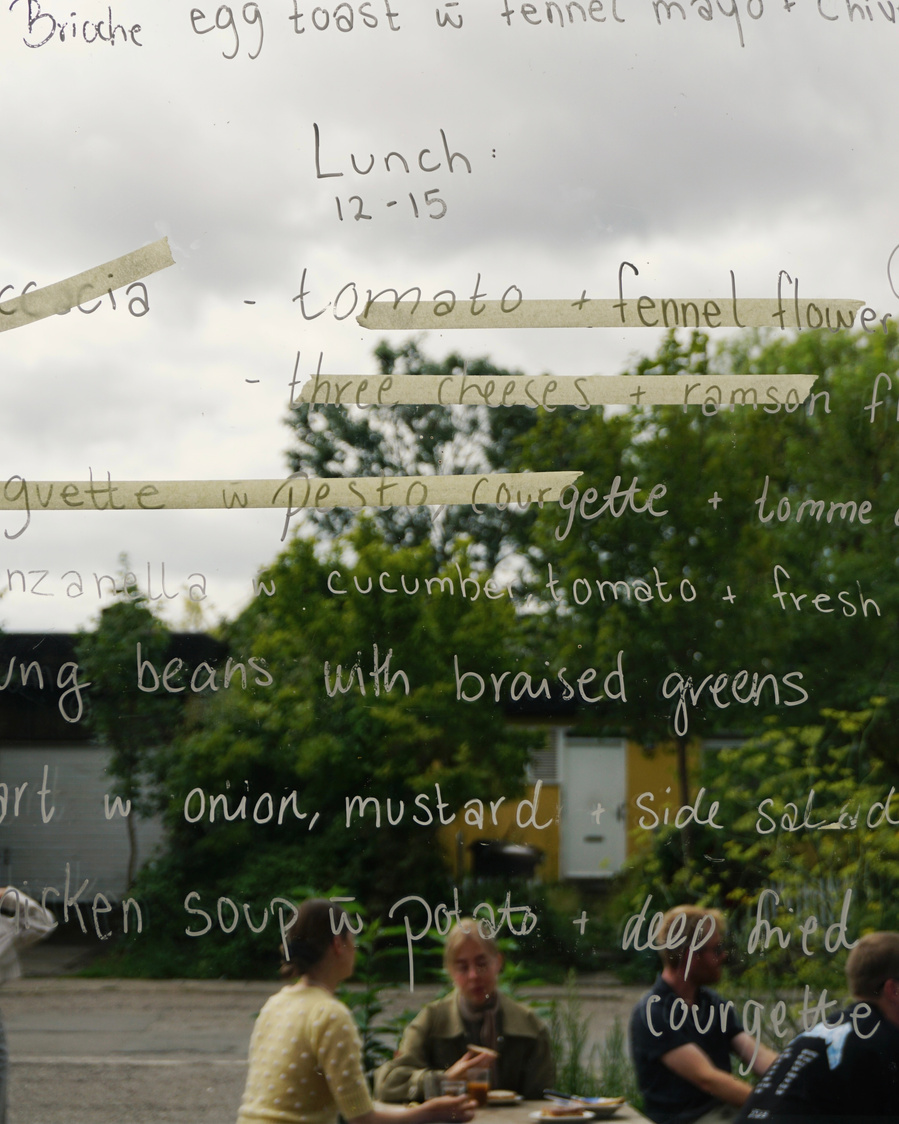 Brioche egg toast w̄ fennel mayo + chiv
Lunch:
12-15
ccacia - tomato + fennel flower
- three cheeses + ramson f
guette w̄ pesto, courgette + tomme
nzanella w cucumber tomato + fresh
ung beans with braised greens
art w onion, mustard + side salad
hicken soup w̄ potato + deep fried
courgette